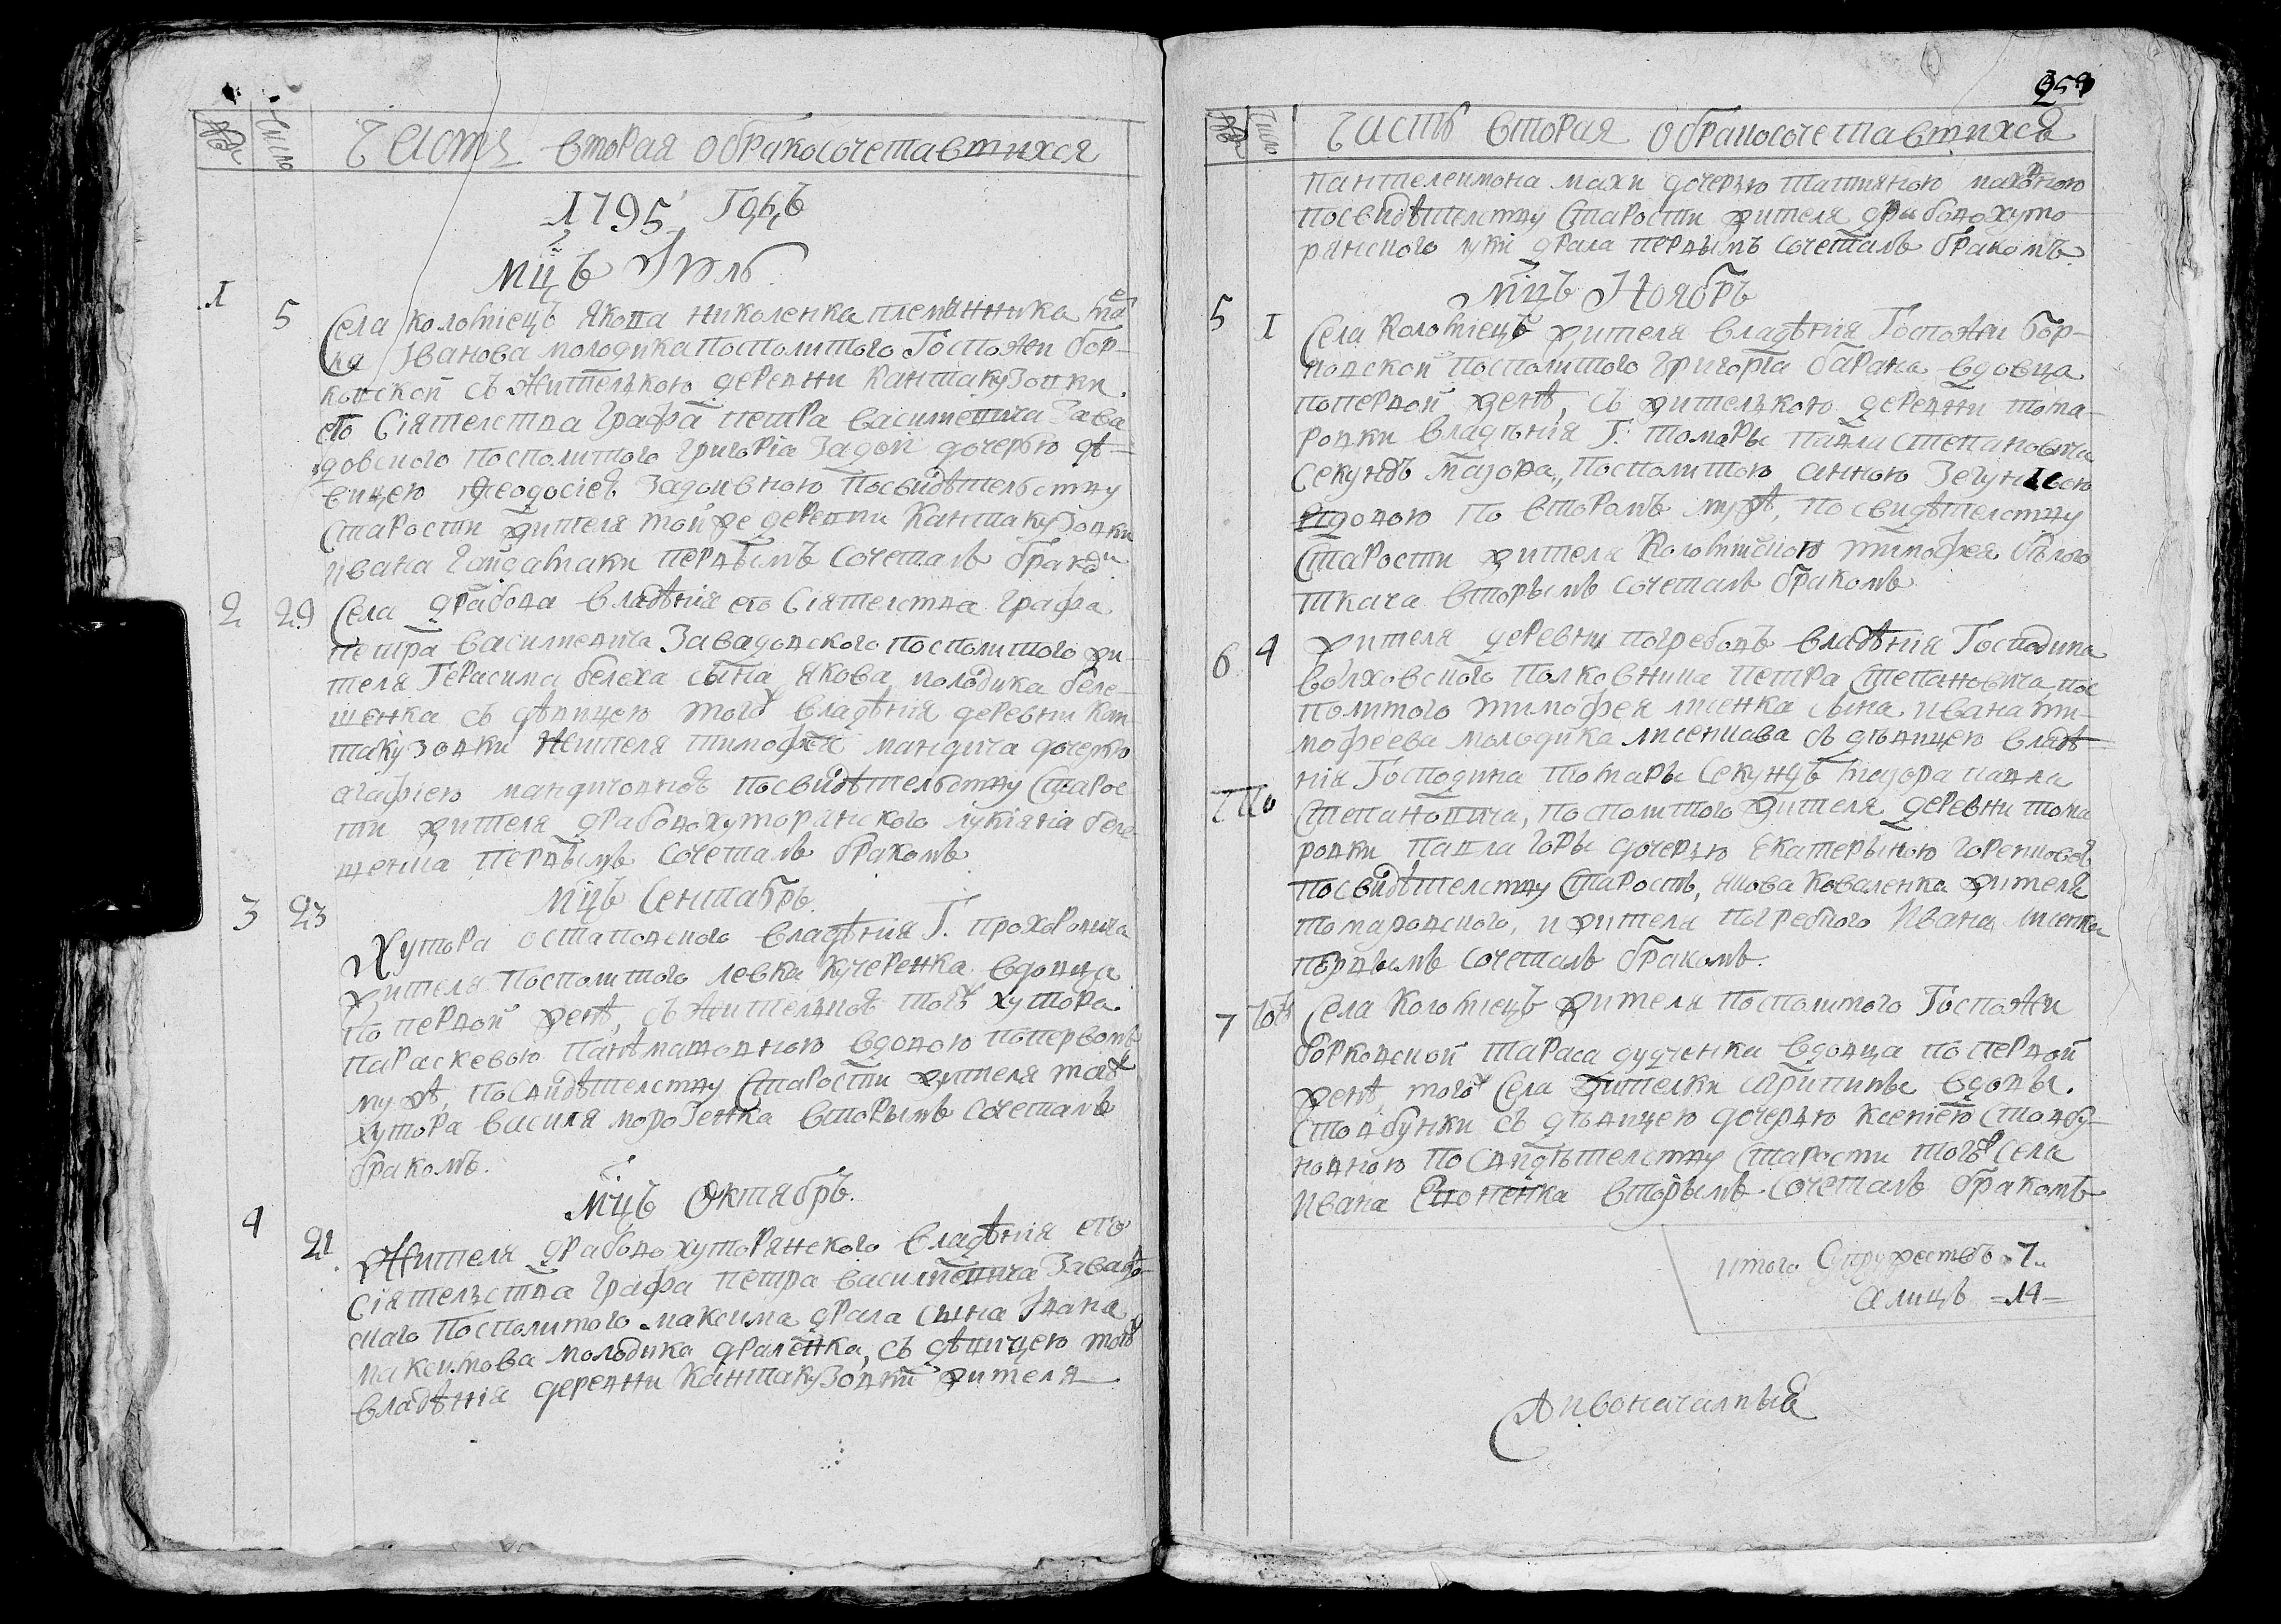 Число
Часть вторая о бракосочетавшихся
1795 Годъ
мцъ Іюль
1 5 Села Коломіецъ Якова Николенка племянника
Іванова молодика посполитого Госпожи Бор-
ковской съ жителькою деревни Кантакузовки
его Сіятелства Графа Петра Василіевича Зава
довского посполитого Григорія Задои дочерью дѣ-
вицею Феодосіею Задоивною по свидѣтельству
Старости жителя той же деревни Кантакузовки
Ивана Гайдамаки первымъ сочеталъ бракомъ
2 29 Села Драбова владѣнія его Сіятелства Графа
Петра Василиевича Завадовского посполитого жи-
теля Герасима Белеха сына Якова молодика Беле-
шенка съ дѣвицею тогожъ владѣнія деревни Кан-
такузовки жителя Тимофея Мандича дочерю
Агафіею Мандичовною по свидѣтельству Старос
ти жителя Драбовохуторянского Лукіяна Беле-
шенка первымъ сочеталъ бракомъ
мцъ Сентябръ
3 23 Хутора Остаповского владѣнія Г. Прохоровича
жителя посполитого Левка Кучеренка вдовца
по первой женѣ, съ жителькою тогожъ хутора
Параскевою вдовою по первомъ
мужѣ, по свидѣтелству Старости жителя тогожъ
хутора Василя Морозенка вторымъ сочеталъ
бракомъ.
Мцъ Октябръ.
4 21 Жителя Драбовохуторянского владѣнія его
Сіятельства Графа Петра Василиевича Завадов-
скаго посполитого Максима Драла сына Івана
Максимова молодика Драленка, съ дѣвицею тогожъ
владѣнія деревни Кантакузовки жителя
259
Число
Часть вторая о бракосочетавшихся
Пантелеимона Махи дочерью Татияною Маховною
по свидѣтелству Старости жителя Драбовохуто
рянского Луки Драла первымъ сочеталъ бракомъ
мцъ Ноябръ
5 1 Села Коломіецъ жителя владѣнія Госпожи Бор-
ковской посполитого Григорія Барана вдовца
по первой женѣ, съ жителькою деревни Тома-
ровки владѣнія Г. Томары Павла Степановича
Секундъ маіора, посполитою Анною
вдовою по второмъ мужѣ, по свидѣтелству
Старости жителя Коломійского Тимофея Бѣлого
ткача вторымъ сочеталъ бракомъ
6 4 жителя деревни Погребовъ владѣнія Господина
Волховского полковника Петра Степановича, пос
политого Тимофея Лисенка сына Ивана Ти-
мофеева молодика Лисенкова съ дѣвицею владѣ-
нія Господина Томары Секундъ маіора Павла
Степановича, посполитого жителя деревни Тома
ровки Павла Горы дочерью Екатериною Горенковою
по свидѣтелству Старостъ, Якова Коваленка жителя
Томаровского, и жителя Погребного Ивана Лисенка
первымъ сочеталъ бракомъ.
7 Тогожъ Села Коломіецъ жителя посполитого Госпожи
Борковской Тараса Дудченка вдовца по первой
женѣ, тогожъ Села жителки Агрипины вдовы
Стовбунки съ дѣвицею дочерью Ксеніею Стовбу-
новною по свидѣтелству Старости тогожъ Села
Ивана вторымъ сочеталъ бракомъ
итого Супружество 7
а лицъ 14
Живоначалныя